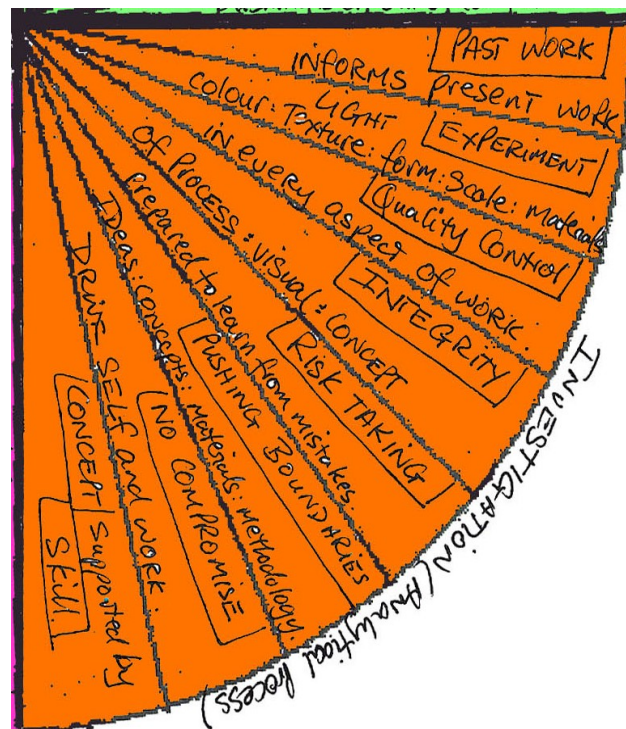 PAST WORK
INFORMS present work
EXPERIMENT
LIGHT
colour: Texture: form: Scale: materials
Quality Control
in every aspect of work.
INTEGRITY
OF PROCESS: VISUAL: CONCEPT
RISK TAKING
prepared to learn from mistakes.
PUSHING BOUNDARIES
Ideas: concepts: materials: methodology.
NO COMPROMISE
DRIVE SELF and work.
CONCEPT supported by
Skill
INVESTIGATION (Analytical Process)